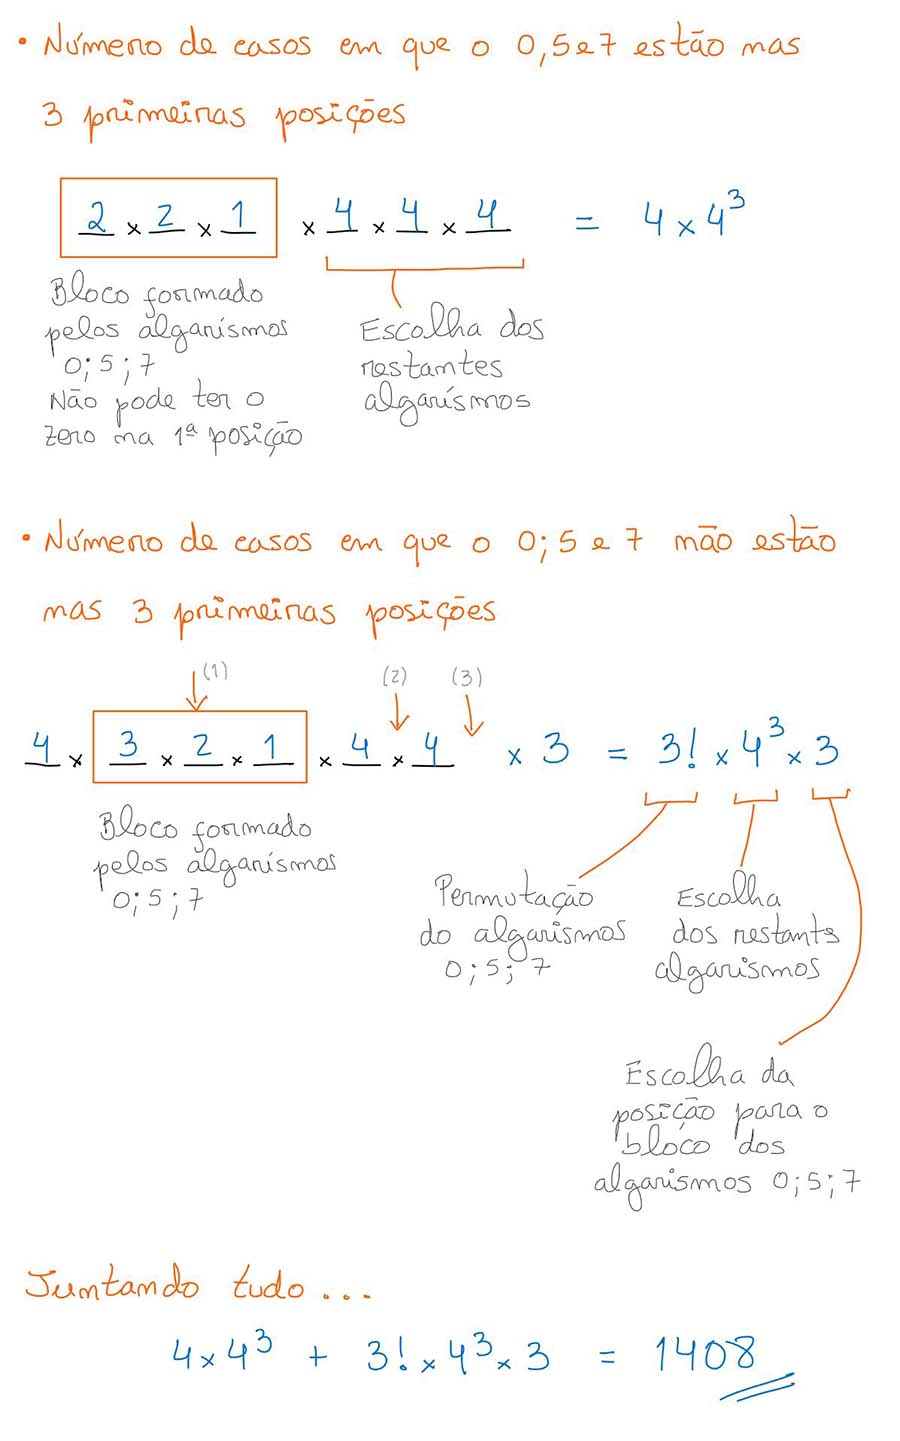 • Número de casos em que o 0,5 e 7 estão nas
3 primeiras posições
2 × 2 × 1 × 4 × 4 × 4 = 4 × 4³
Bloco formado
pelos algarismos
0;5;7
Não pode ter o
zero na 1ª posição
Escolha dos
restantes
algarismos
• Número de casos em que o 0;5 e 7 não estão
nas 3 primeiras posições
(1) (2) (3)
4 × 3 × 2 × 1 × 4 × 4 × 3 = 3! × 4³ × 3
Bloco formado
pelos algarismos
0;5;7
Permutação
do algarismos
0;5;7
Escolha
dos restants
algarismos
Escolha da
posição para o
bloco dos
algarismos 0;5;7
Juntando tudo...
4 × 4³ + 3! × 4³ × 3 = 1408